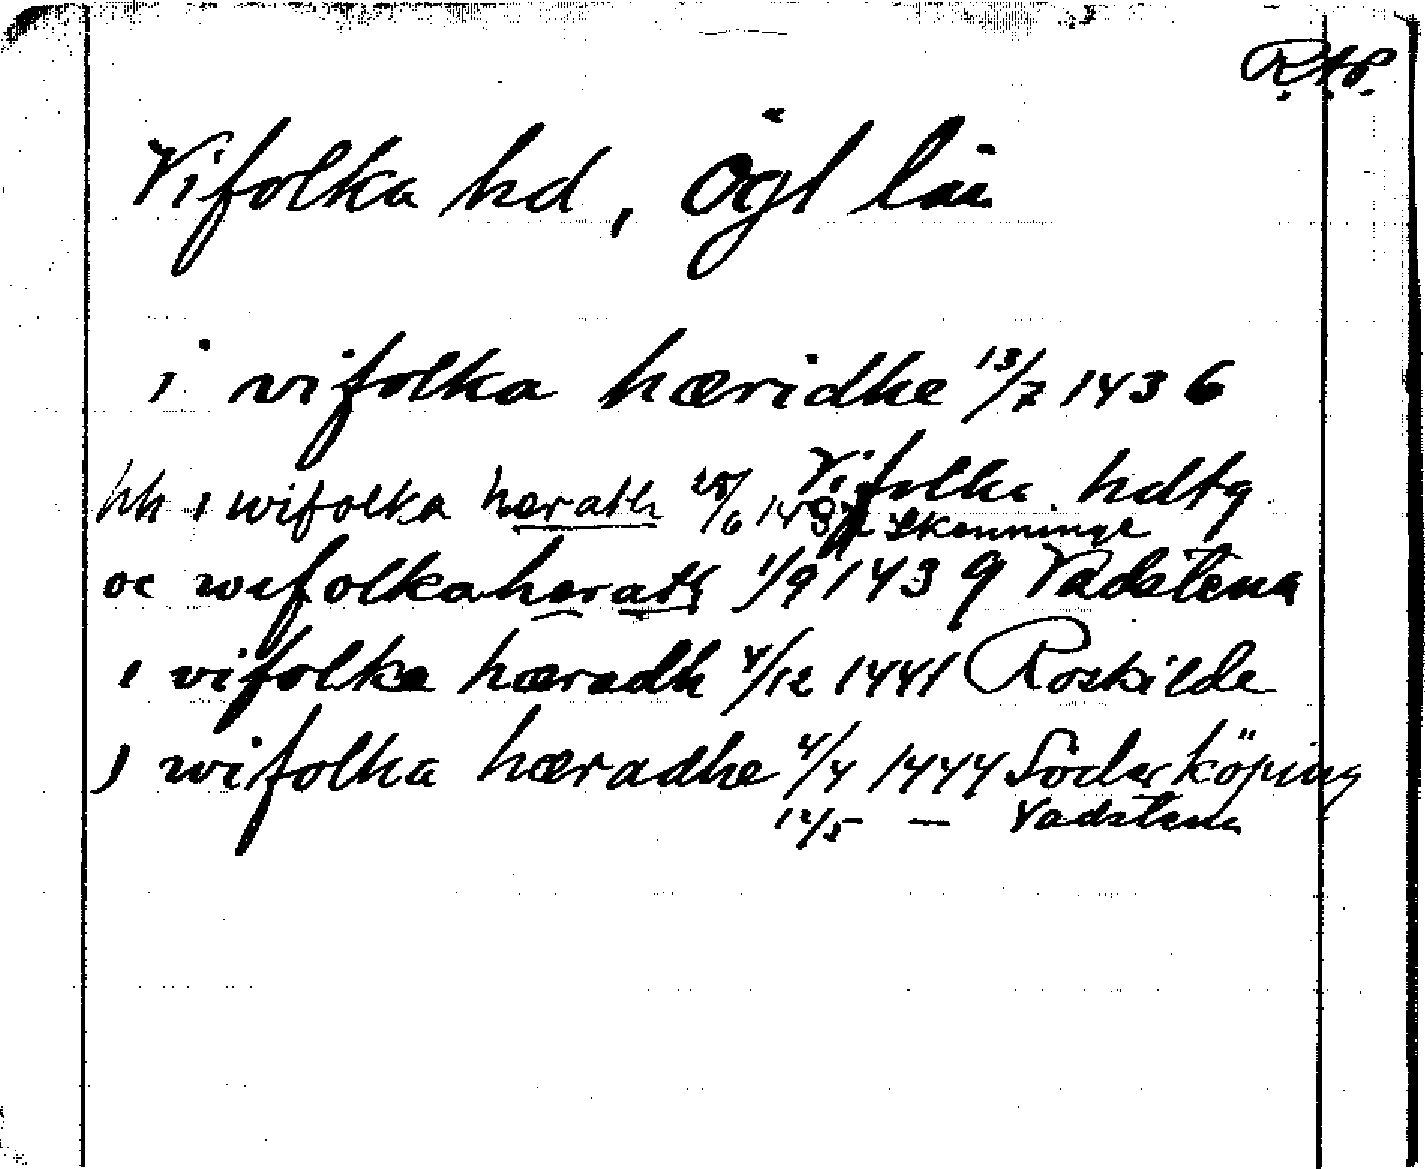 R.A.P.
Vifolka hd, Ögl län
i vifolka hæridhe 13/7 1436
Vifolka hdtg
hh i wifolka hærath 25/6 1437 Skenninge
oc wifolkahærath 1/9 1439 Vadstena
i vifolka hæradh 4/12 1441 Roskilde
J wifolka hæradhe 4/4 1444 Söderköping
12/5 — Vadstena